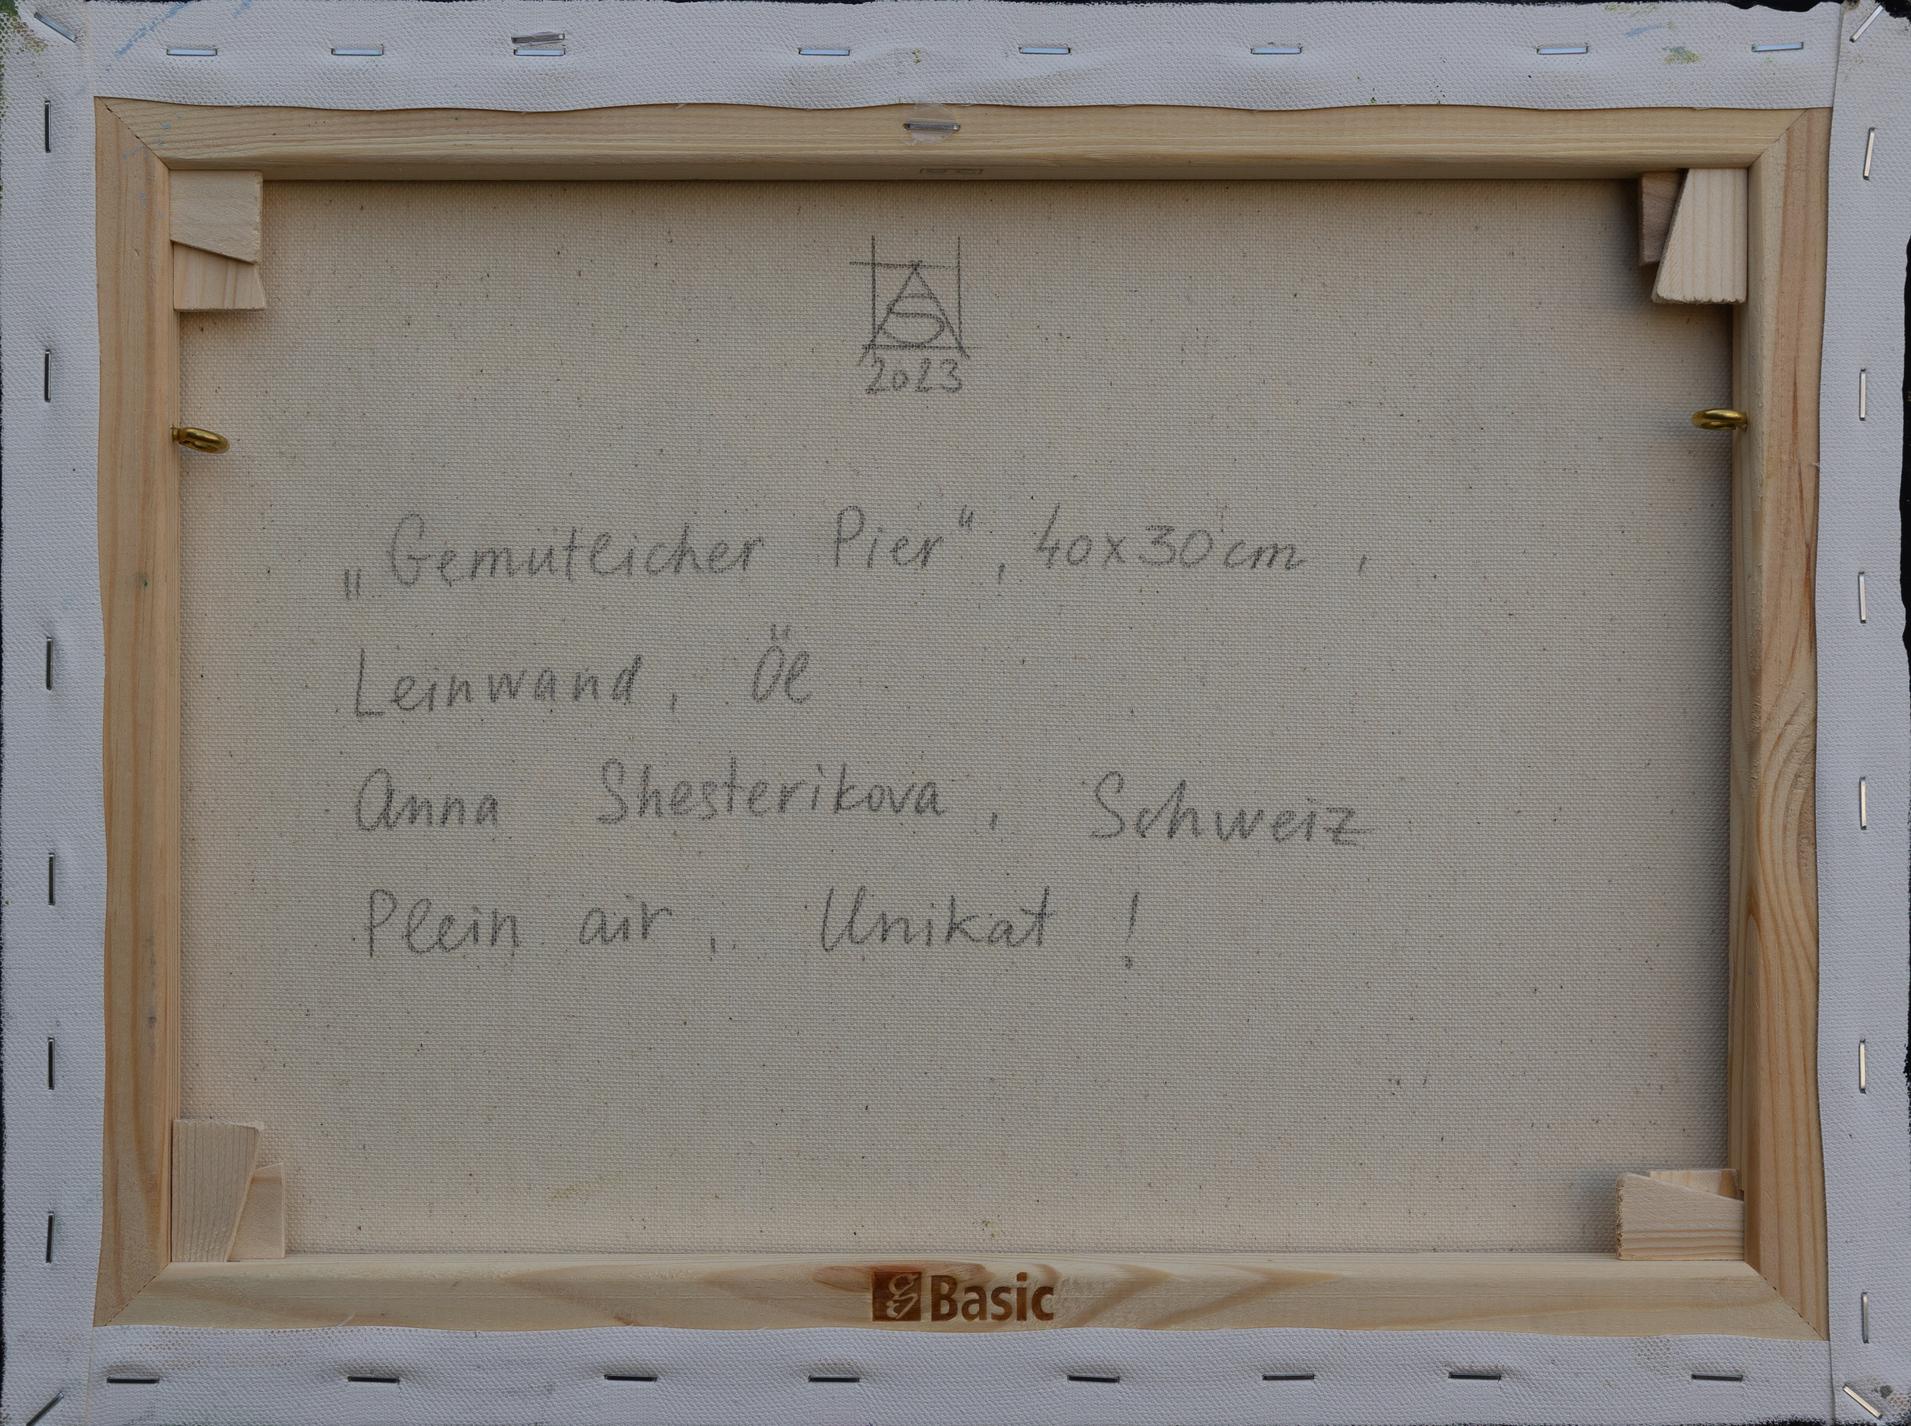 AS
2023
„Gemütlicher Pier“, 40x30 cm,
Leinwand, Öl
Anna Shesterikova, Schweiz
Plein air, Unikat !
Basic